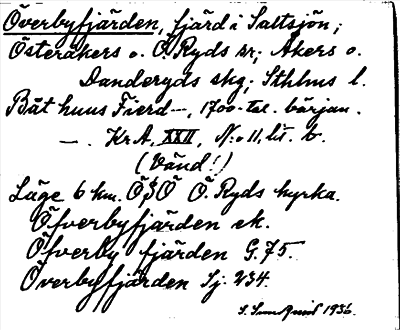 Överbyfjärden, fjärd i Saltsjön;
Österåkers o. Ö. Ryds sr; Åkers o.
Danderyds skg; Sthlms l.
Båt huus Fierd –, 1700-tal. början.
–. Kr.A, XXII, N:o 11, lit. b.
(Vänd!)
Läge 6 km. ÖSÖ Ö. Ryds kyrka.
Öfverbyfjärden ek.
Öfverby fjärden G. 75.
Överbyfjärden Sj. 234.
1936.